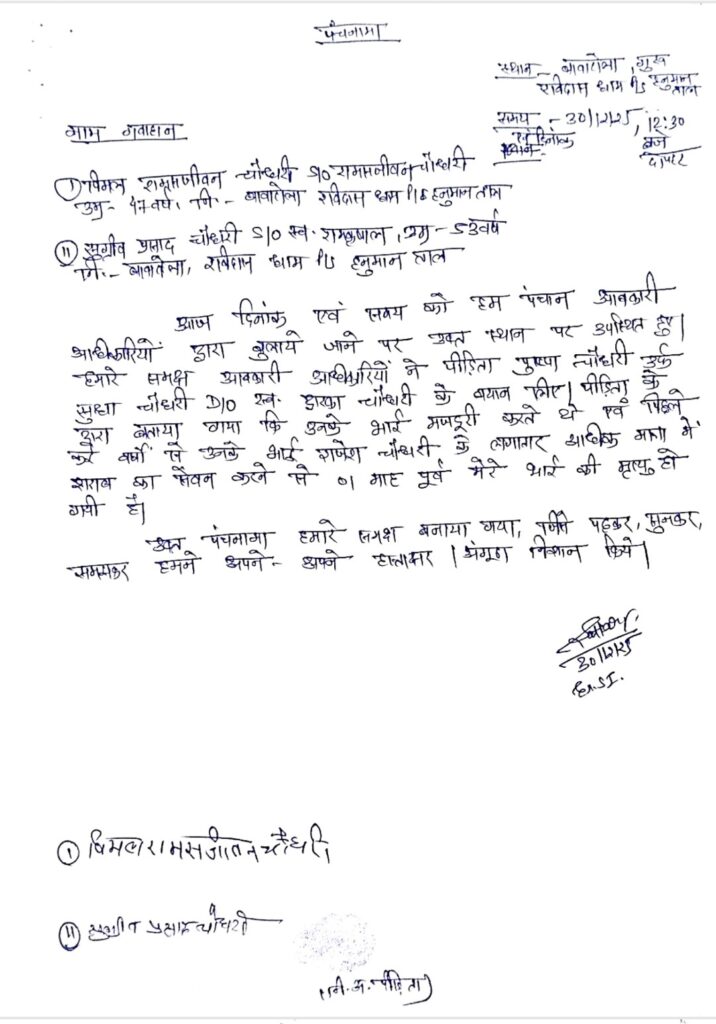 पंचनामा
स्थान - बाबाटोला, गुरु
रविदास धाम P/S हनुमान
ताल
समय - 30/12/25, 12:30
एवं दिनांक बजे
दोपहर
नाम गवाहान
① रामसजीवन चौधरी S/o रामसजीवन चौधरी
उम्र - 47 वर्ष, नि. - बाबाटोला रविदास धाम P/S हनुमान ताल
② सुग्रीव प्रसाद चौधरी S/O स्व. रामकृपाल, उम्र - 53 वर्ष
नि. - बाबाटोला, रविदास धाम P/S हनुमान ताल
आज दिनांक एवं समय को हम पंचान आबकारी
अधिकारियों द्वारा बुलाये जाने पर उक्त स्थान पर उपस्थित हुए।
हमारे समक्ष आबकारी अधिकारियों ने पीड़िता पुष्पा चौधरी उर्फ
सुधा चौधरी D/O स्व. द्वारका चौधरी के बयान लिए। पीड़िता के
द्वारा बताया गया कि उनके भाई मजदूरी करते थे एवं पिछले
कई वर्षों से उनके भाई राजेश चौधरी के लगातार अधिक मात्रा में
शराब का सेवन करने से 01 माह पूर्व मेरे भाई की मृत्यु हो
गयी है।
उक्त पंचनामा हमारे समक्ष बनाया गया, जिसे पढ़कर, सुनकर,
समझकर हमने अपने - अपने हस्ताक्षर / अंगूठा निशान किये।
30/12/25
① विमल रामसजीवन चौधरी
② सुग्रीव प्रसाद चौधरी
(नि. अ. पीड़िता)